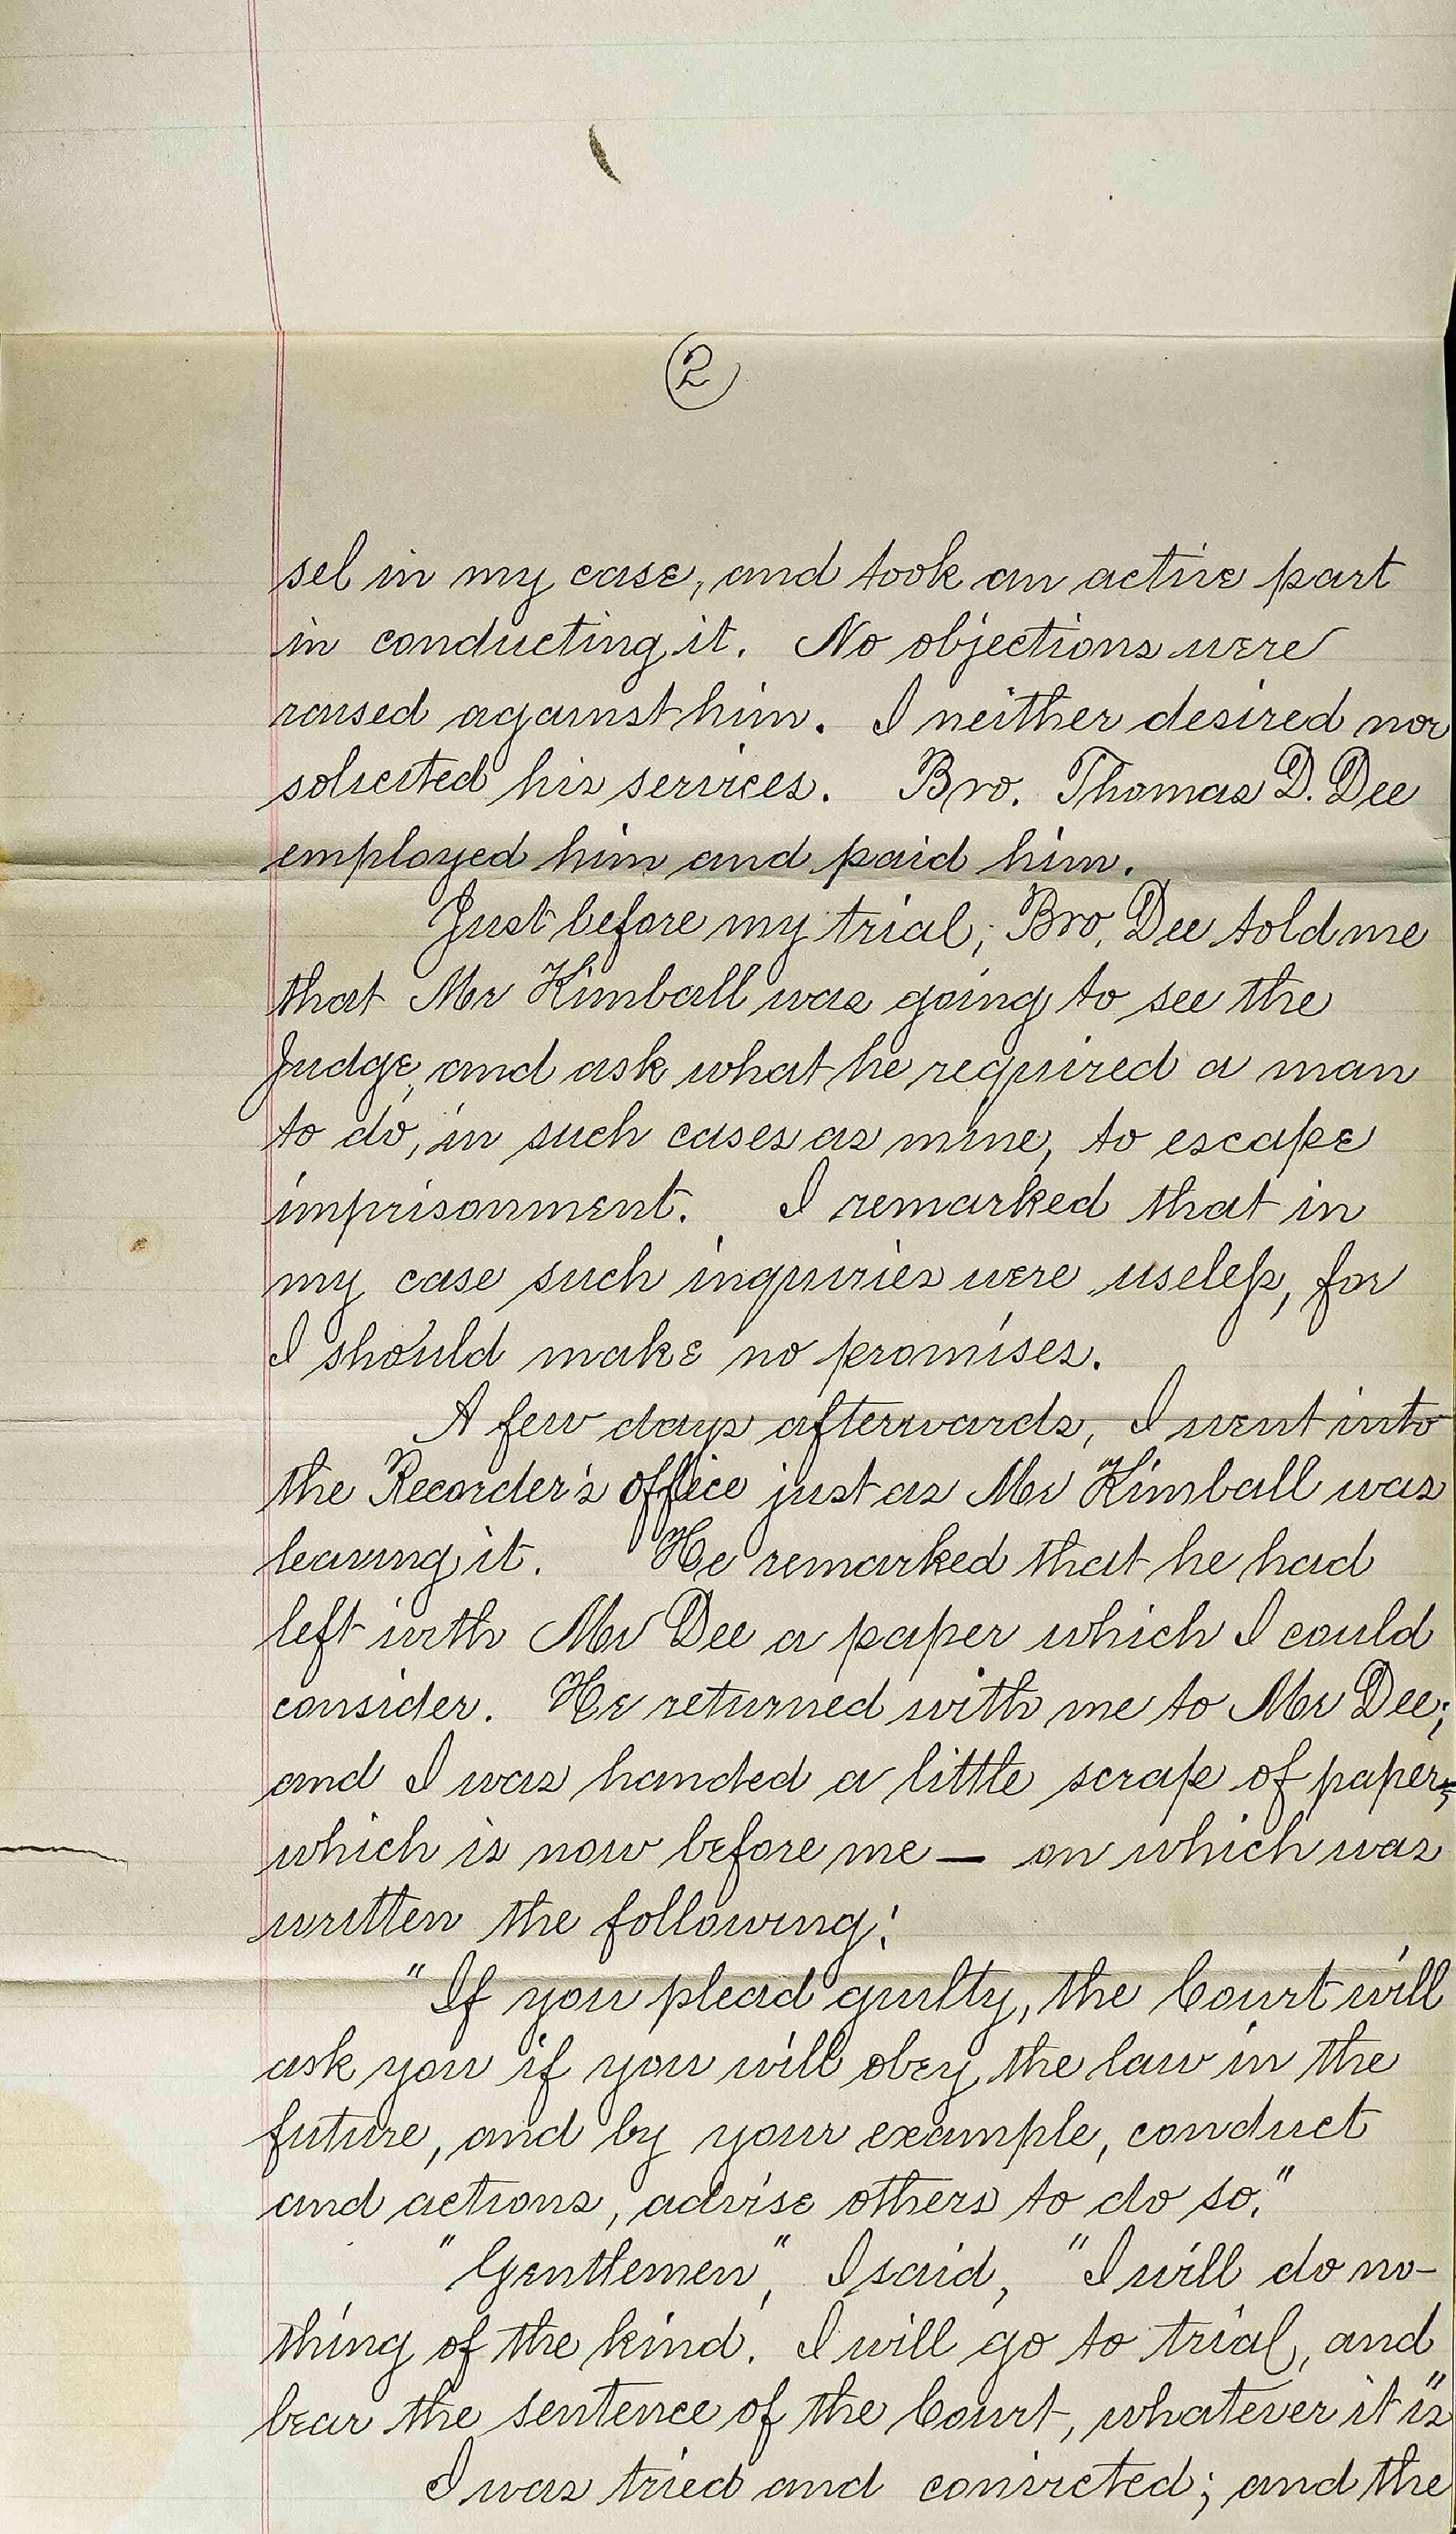 2
sel in my case, and took an active part
in conducting it. No objections were
raised against him. I neither desired nor
solicited his services. Bro. Thomas D. Dee
employed him and paid him.
Just before my trial, Bro. Dee told me
that Mr Kimball was going to see the
Judge, and ask what he required a man
to do, in such cases as mine, to escape
imprisonment. I remarked that in
my case such inquiries were useless, for
I should make no promises.
A few days afterwards, I went into
the Recorder's office just as Mr Kimball was
leaving it. He remarked that he had
left with Mr Dee a paper which I could
consider. He returned with me to Mr Dee;
and I was handed a little scrap of paper,
which is now before me — on which was
written the following:
"If you plead guilty, the Court will
ask you if you will obey the law in the
future, and by your example, conduct
and actions, advise others to do so."
"Gentlemen", I said, "I will do no-
thing of the kind. I will go to trial, and
bear the sentence of the Court, whatever it is"
I was tried and convicted; and the